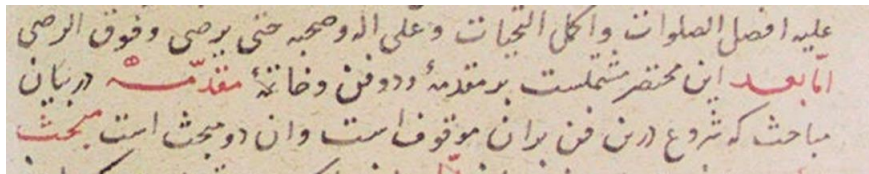 علیه افضل الصلوات واکمل التحیات وعلی اله وصحبه حتی یرضی وفوق الرضی
امّا بعد این مختصر مشتملست بر مقدمهٔ ودو فن وخاتمهٔ مقدّمه در بیان
مباحث که شروع درین فن بران موقوف است وان دو مبحث است مبحث